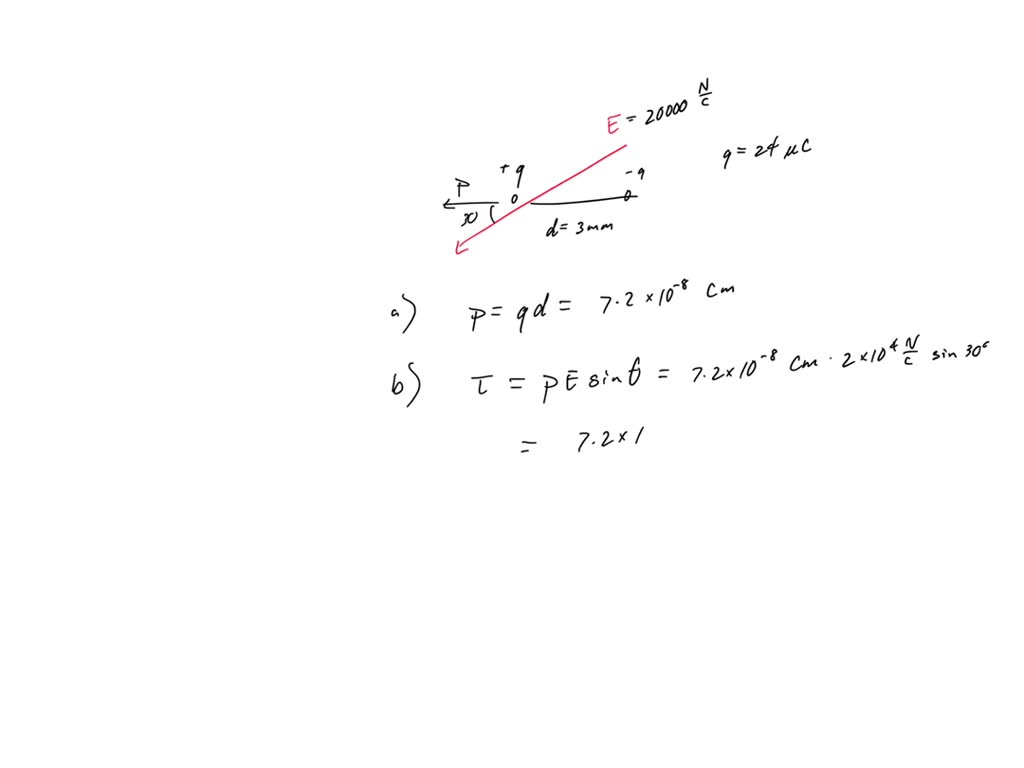 E = 20000 N/C
q = 24 μC
+q
-q
P
30
d = 3mm
a) P = qd = 7.2 × 10⁻⁸ Cm
b) τ = pE sinθ = 7.2 × 10⁻⁸ Cm · 2 × 10⁴ N/C sin 30°
= 7.2 × 1